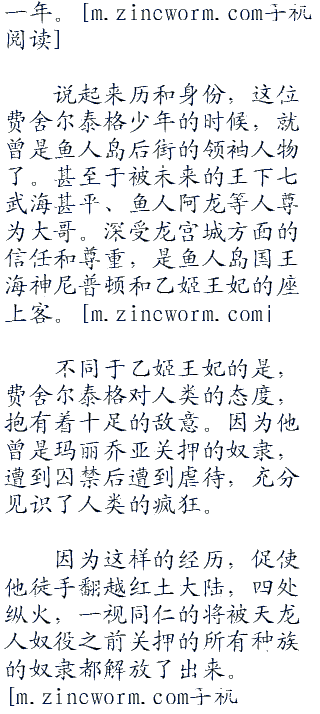 一年。[m.zincworm.com手机
阅读]
说起来历和身份，这位
费舍尔泰格少年的时候，就
曾是鱼人岛后街的领袖人物
了。甚至于被未来的王下七
武海甚平、鱼人阿龙等人尊
为大哥。深受龙宫城方面的
信任和尊重，是鱼人岛国王
海神尼普顿和乙姬王妃的座
上客。[m.zincworm.com]
不同于乙姬王妃的是，
费舍尔泰格对人类的态度，
抱有着十足的敌意。因为他
曾是玛丽乔亚关押的奴隶，
遭到囚禁后遭到虐待，充分
见识了人类的疯狂。
因为这样的经历，促使
他徒手翻越红土大陆，四处
纵火，一视同仁的将被天龙
人奴役之前关押的所有种族
的奴隶都解放了出来。
[m.zincworm.com手机